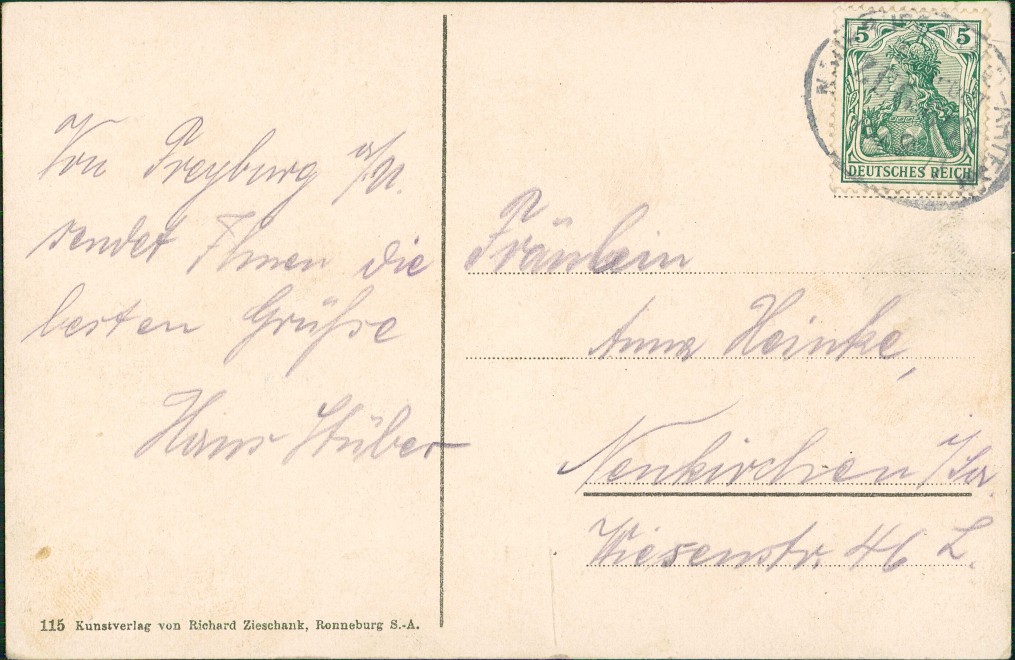 Von Freyburg a/U.
sendet Ihnen die
besten Grüße
Hans Stüber
5 5
DEUTSCHES REICH
Fräulein
Anna Heinke,
Neukirchen i/Sa.
Wiesenstr. 46 L.
115 Kunstverlag von Richard Zieschank, Ronneburg S.-A.